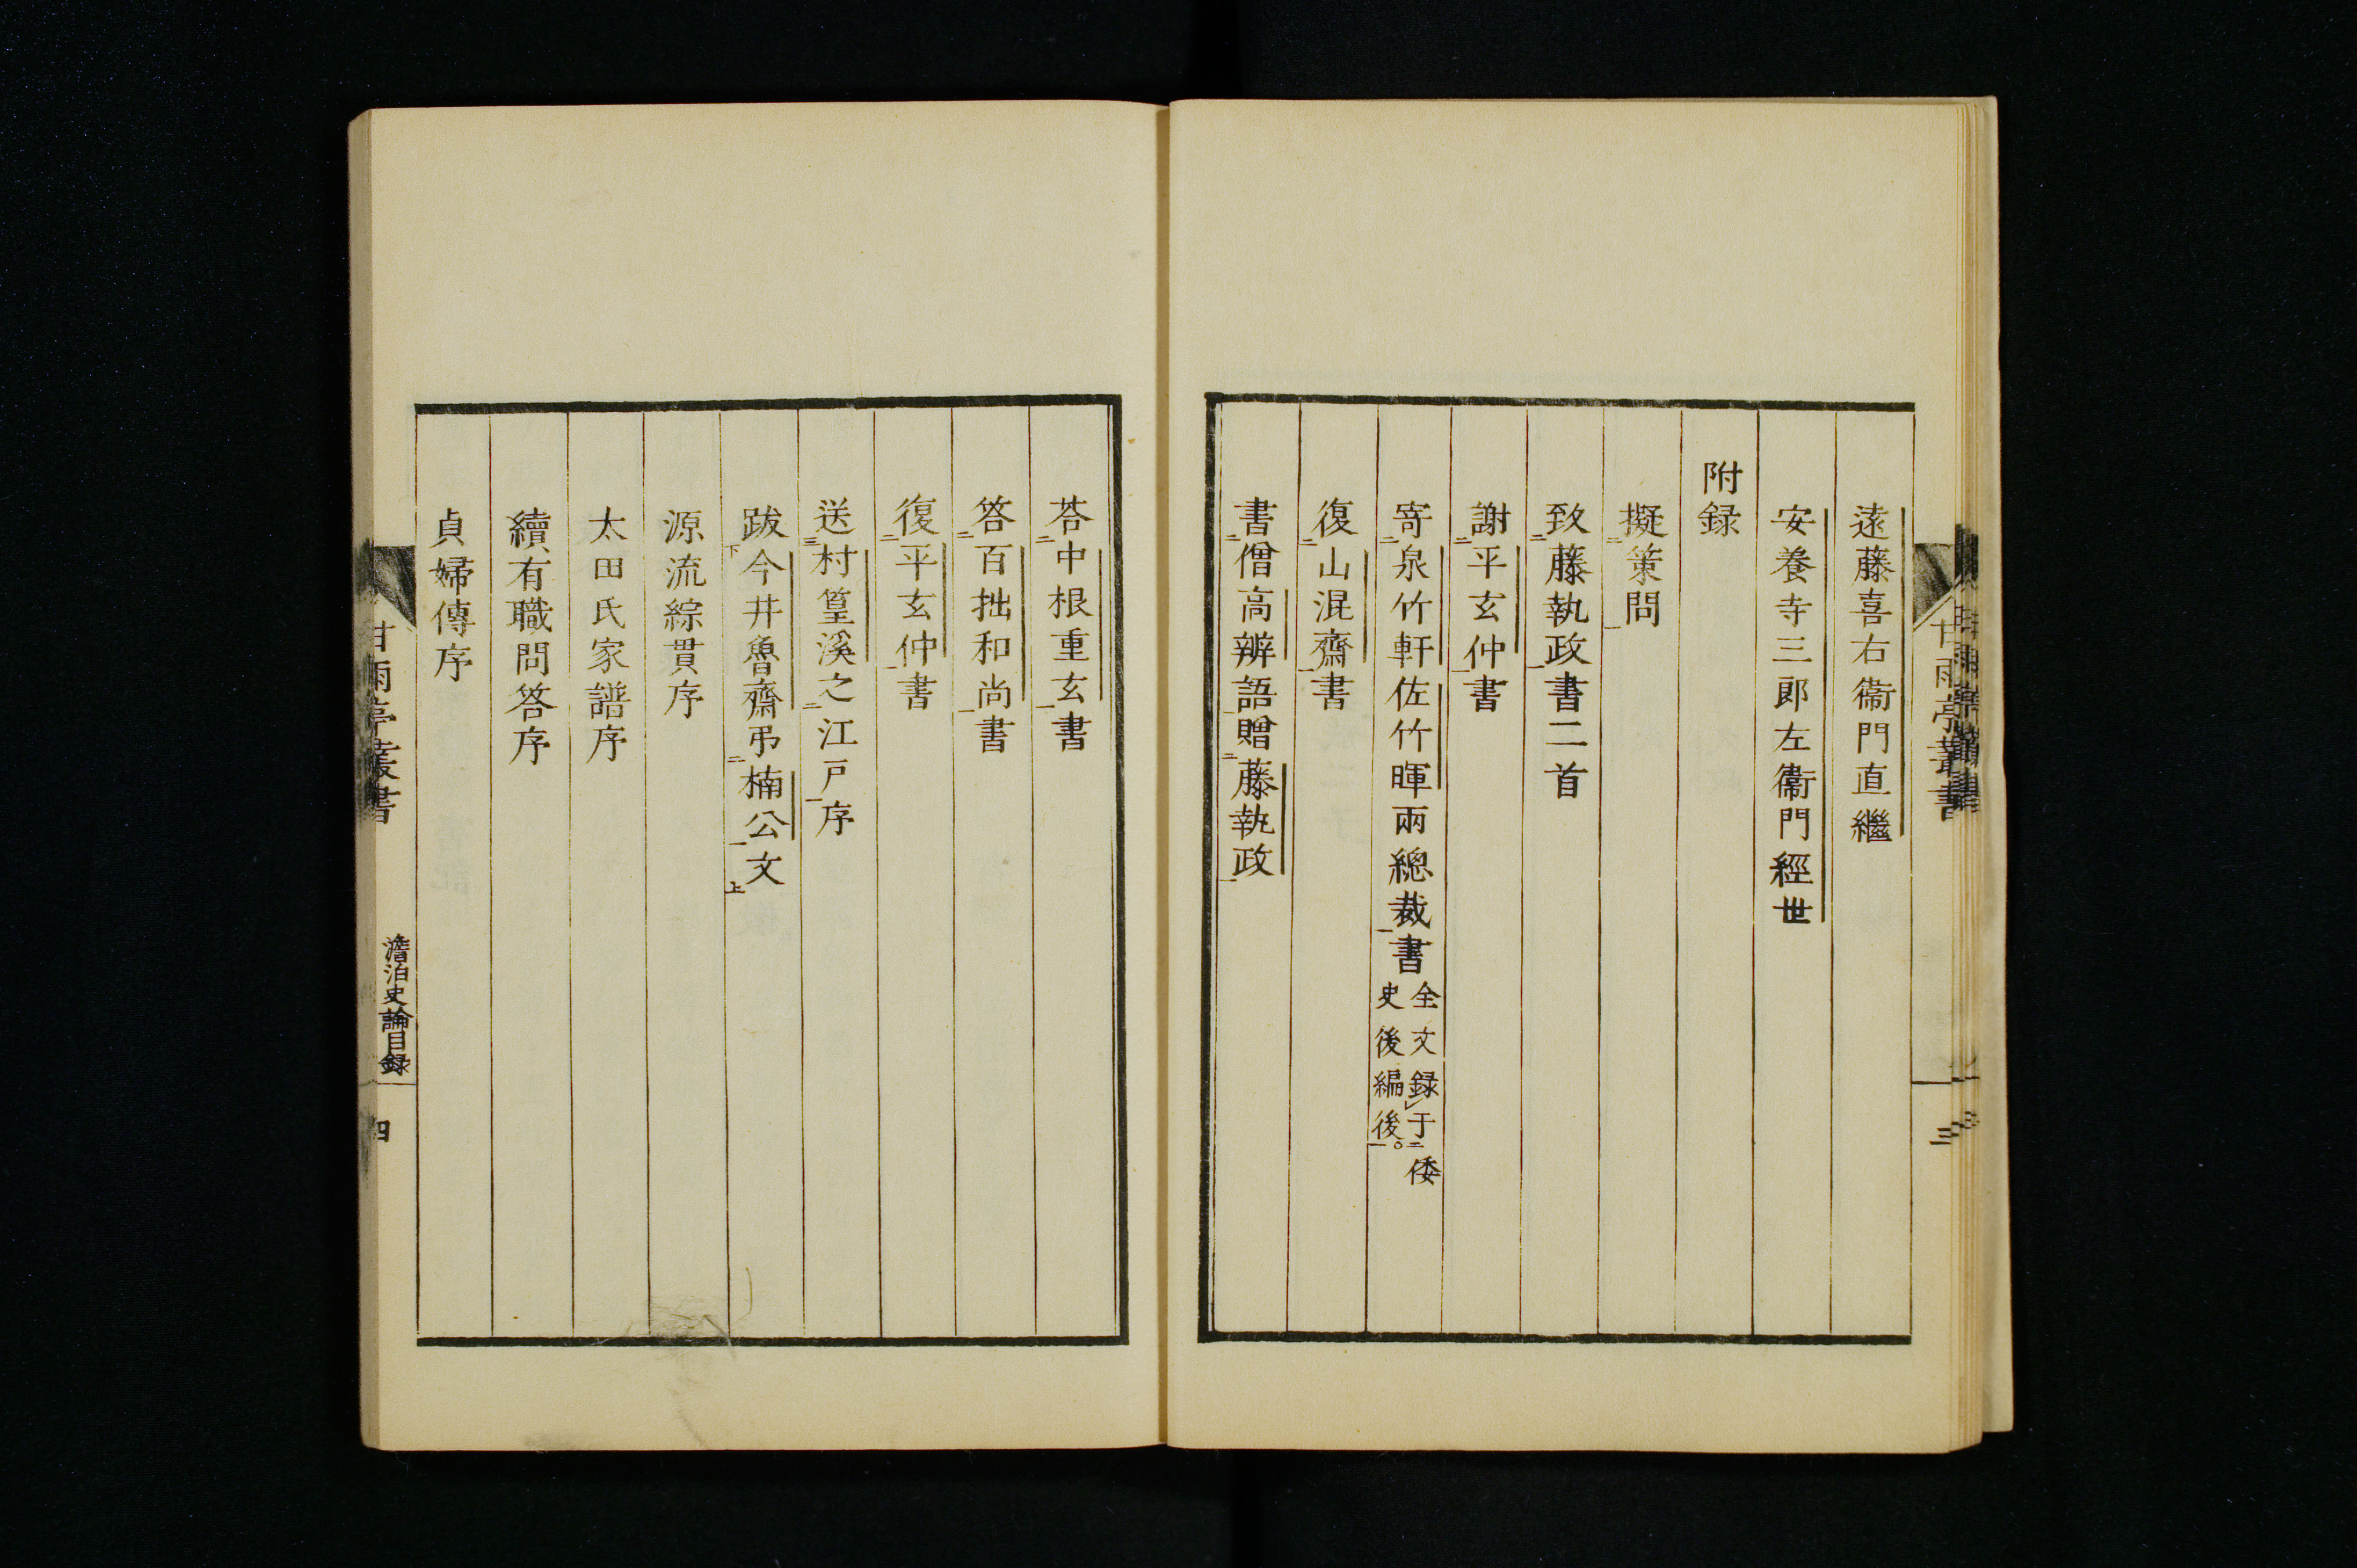 遠藤喜右衞門直繼
安養寺三郎左衞門經世
附録
擬策問
致藤執政書二首
謝平玄仲書
寄泉竹軒佐竹暉兩總裁書全文録于倭
史後編後。
復山混齋書
書僧高辨語贈藤執政
甘雨亭叢書
三
荅中根重玄書
答百拙和尚書
復平玄仲書
送村篁溪之江戸序
跋今井魯齋弔楠公文
源流綜貫序
太田氏家譜序
續有職問答序
貞婦傳序
甘雨亭叢書
澹泊史論目録
四